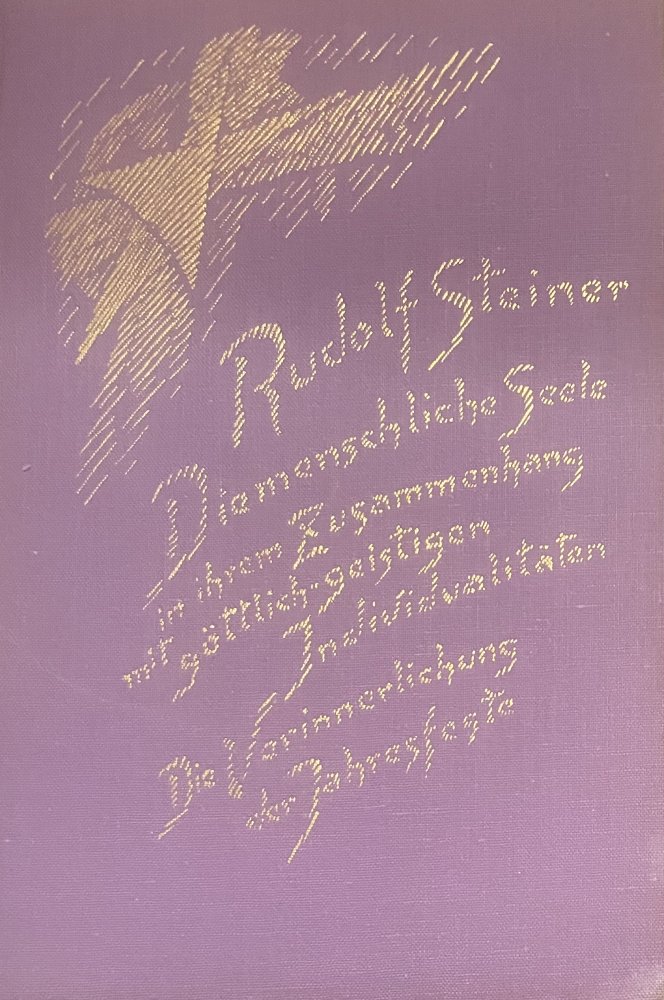 Rudolf Steiner
Die menschliche Seele
in ihrem Zusammenhang
mit göttlich-geistigen
Individualitäten
Die Verinnerlichung
der Jahresfeste